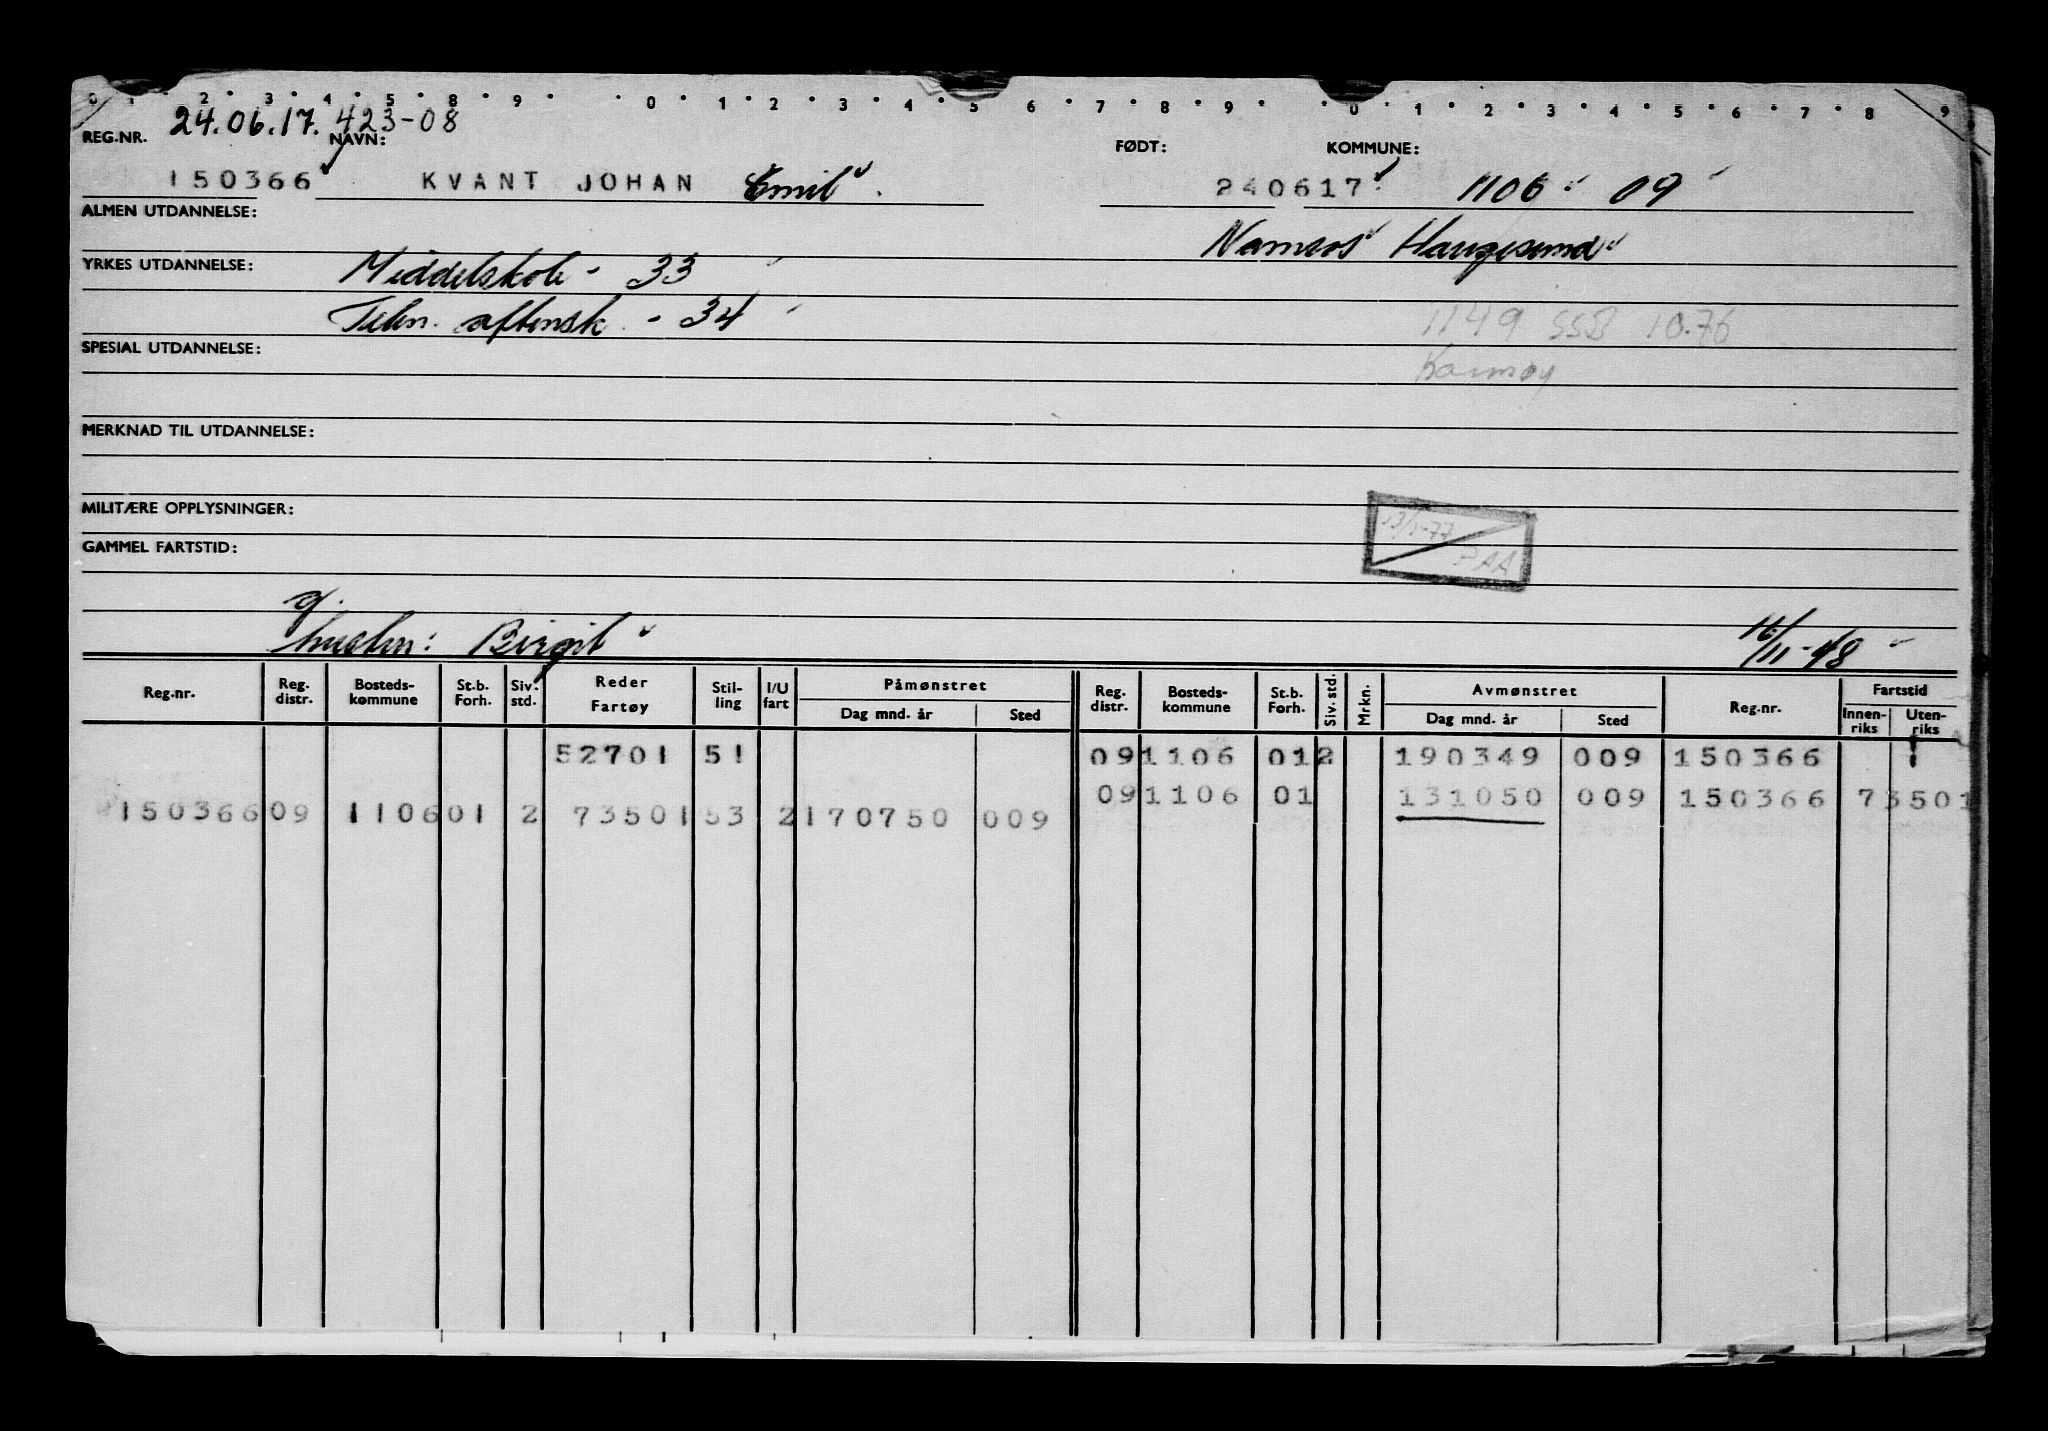 0 1 2 3 4 5 8 9 0 1 2 3 4 5 6 7 8 9 0 1 2 3 4 5 6 7 8 9
24.06.17. 423-08
REG.NR. NAVN: FØDT: KOMMUNE:
150366 KVANT JOHAN Emil. 240617 1106 09
ALMEN UTDANNELSE:
Namsos Haugesund
YRKES UTDANNELSE: Middelskole - 33
Tekn. aftensk. - 34 1149 SSB 10.76
SPESIAL UTDANNELSE: Karmøy
MERKNAD TIL UTDANNELSE:
MILITÆRE OPPLYSNINGER:
13/1-77
PAA
GAMMEL FARTSTID:
g.
hustru: Birgit 16/11-48
Reg.nr. Reg. distr. Bosteds-kommune St.b. Forh. Siv. std. Reder Fartøy Stil-ling I/U fart Påmønstret Dag mnd. år Sted Reg. distr. Bosteds-kommune St.b. Forh. Siv. std. Mrkn. Avmønstret Dag mnd. år Sted Reg.nr. Fartstid Innen-riks Uten-riks
52701 51 09 1106 01 2 190349 009 150366 1
09 1106 01 131050 009 150366 73501
150366 09 1106 01 2 73501 53 2 170750 009